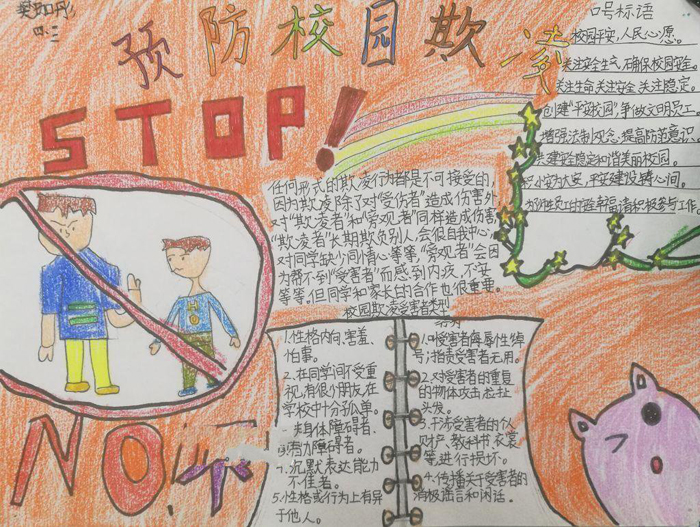 樊如彤
四.三
预防校园欺凌
STOP!
口号标语
校园平安,人民心愿。
关注安全生产,确保校园安全。
关注生命 关注安全 关注稳定。
创建"平安校园",争做文明员工
增强法制观念,提高防范意识。
共建安全稳定和谐美丽校园。
小安为大家,平安建设铸心间。
幸福请积极参与工作
任何形式的欺凌行为都是不可接受的,
因为欺凌除了对"受伤者"造成伤害外
对"欺凌者"和"旁观者"同样造成伤害
"欺凌者"长期欺负别人,会很自我中心
对同学缺少同情心等等,"旁观者"会因
为帮不到"受害者"而感到内疚,不安
等等,但同学和家长的合作也很重要。
校园欺凌受害者类型
1.性格内向、害羞、
怕事。
2.在同学间不受重
视,有很少朋友,在
学校中十分孤单。
3.身体障碍者、
智力障碍者。
4.沉默表达能力
不佳者。
5.性格或行为上有异
于他人。
1.叫受害者侮辱性绰
号;指责受害者无用。
2.对受害者的重复
的物体攻击,拉扯
头发。
3.干涉受害者的
财产、教科书、衣裳
等,进行损坏。
4.传播关于受害者的
消极谣言和闲话。
NO!不